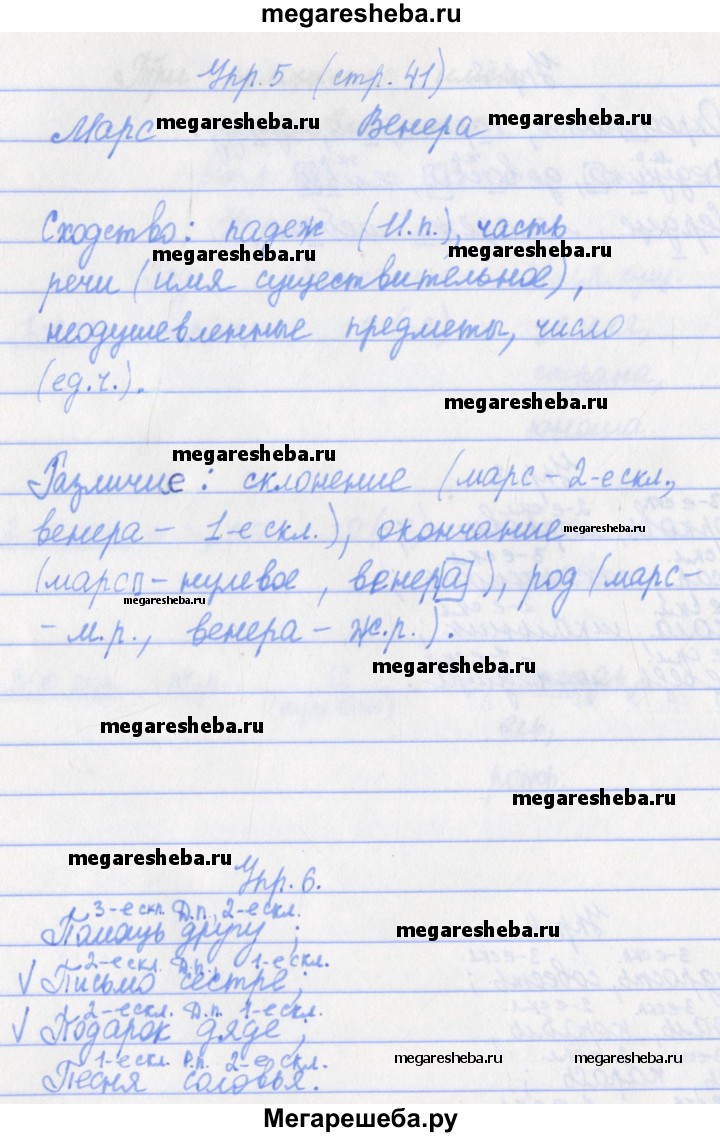 megaresheba.ru
Упр. 5 (стр. 41)
Марс megaresheba.ru Венера megaresheba.ru
Сходство: падеж (И.п.), часть
megaresheba.ru megaresheba.ru
речи (имя существительное),
неодушевленные предметы, число
(ед.ч.).
megaresheba.ru
megaresheba.ru
Различие: склонение (марс – 2-е скл.,
венера – 1-е скл.), окончание megaresheba.ru
(марс – нулевое, венера), род (марс –
megaresheba.ru
– м.р., венера – ж.р.).
megaresheba.ru
megaresheba.ru
megaresheba.ru
megaresheba.ru
Упр. 6.
3-е скл. Д.п., 2-е скл.
Помощь другу;
megaresheba.ru
2-е скл. Д.п. 1-е скл.
√ Письмо сестре;
2-е скл. Д.п. 1-е скл.
√ Подарок дяде;
1-е скл. Р.п. 2-е скл.
megaresheba.ru megaresheba.ru
Песня соловья.
Мегарешеба.ру